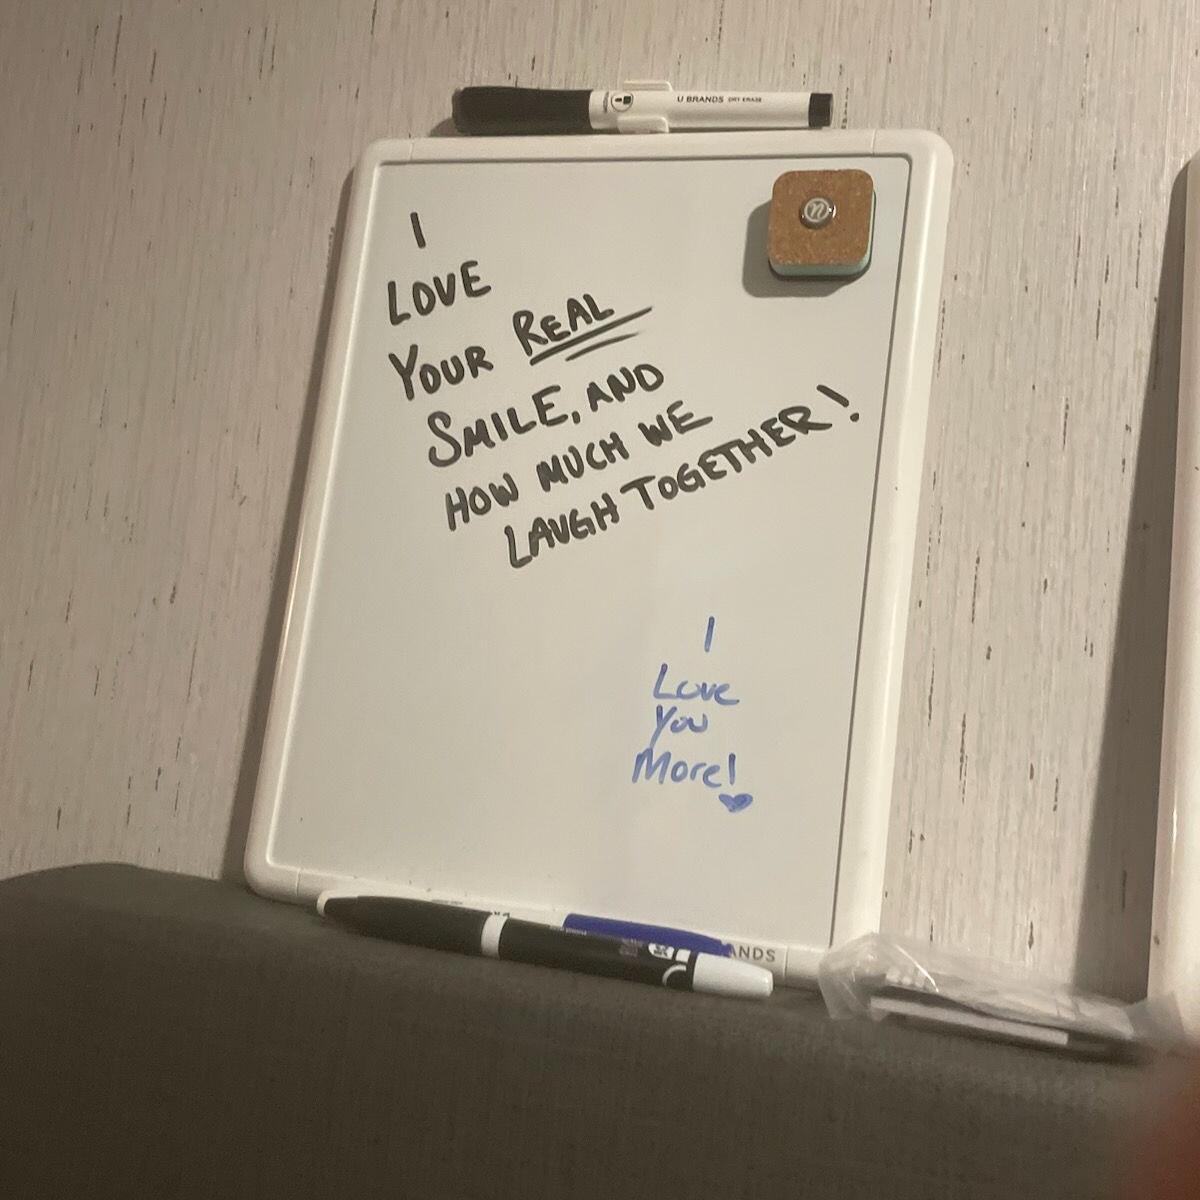 U BRANDS DRY ERASE
I
LOVE
YOUR REAL
SMILE, AND
HOW MUCH WE
LAUGH TOGETHER!
I
Love
You
More!